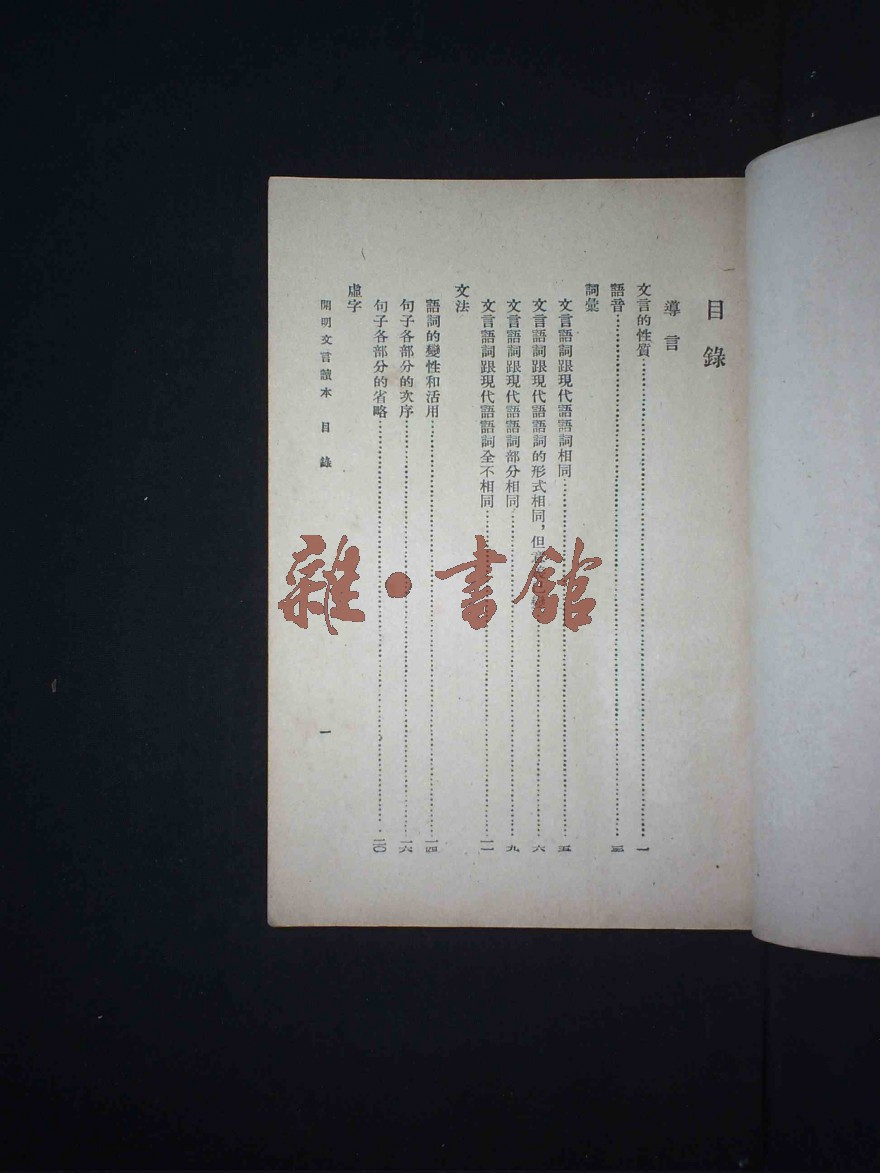 目錄
導言
文言的性質……一
語音……三
詞彙
文言語詞跟現代語語詞相同……五
文言語詞跟現代語語詞的形式相同，但意……六
文言語詞跟現代語語詞部分相同……九
文言語詞跟現代語語詞全不相同……一一
文法
語詞的變性和活用……一四
句子各部分的次序……一六
句子各部分的省略……二〇
虛字
開明文言讀本 目錄 一
雜·書館